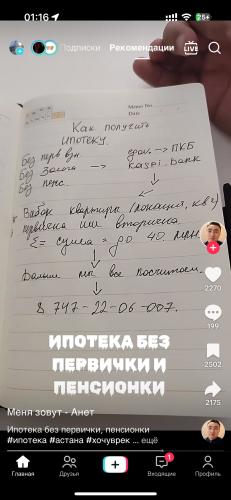 01:16
Подписки
Рекомендации
LIVE
Как получить
ипотеку
Без перв взн
Без залога → Kaspi.bank
Без пенс.
→ ПКБ
квартиры
первичка или вторичка
Σ = сумма = до 40 млн
Дальше мы все посчитаем.
8 747-22-06-007.
ИПОТЕКА БЕЗ
ПЕРВИЧКИ И
ПЕНСИОНКИ
2270
199
2502
2175
Меня зовут - Анет
Ипотека без первички, пенсионки
#ипотека #астана #хочуврек ... ещё
Главная
Друзья
1
Входящие
Профиль